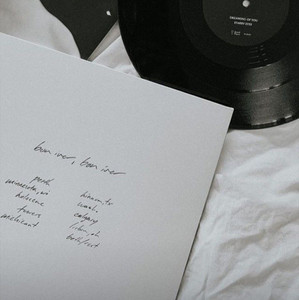 DREAMING OF YOU
bon iver, bon iver
perth
minnesota, wi
holocene
towers
michicant
hinnom, tx
wash.
calgary
lisbon, oh
beth/rest